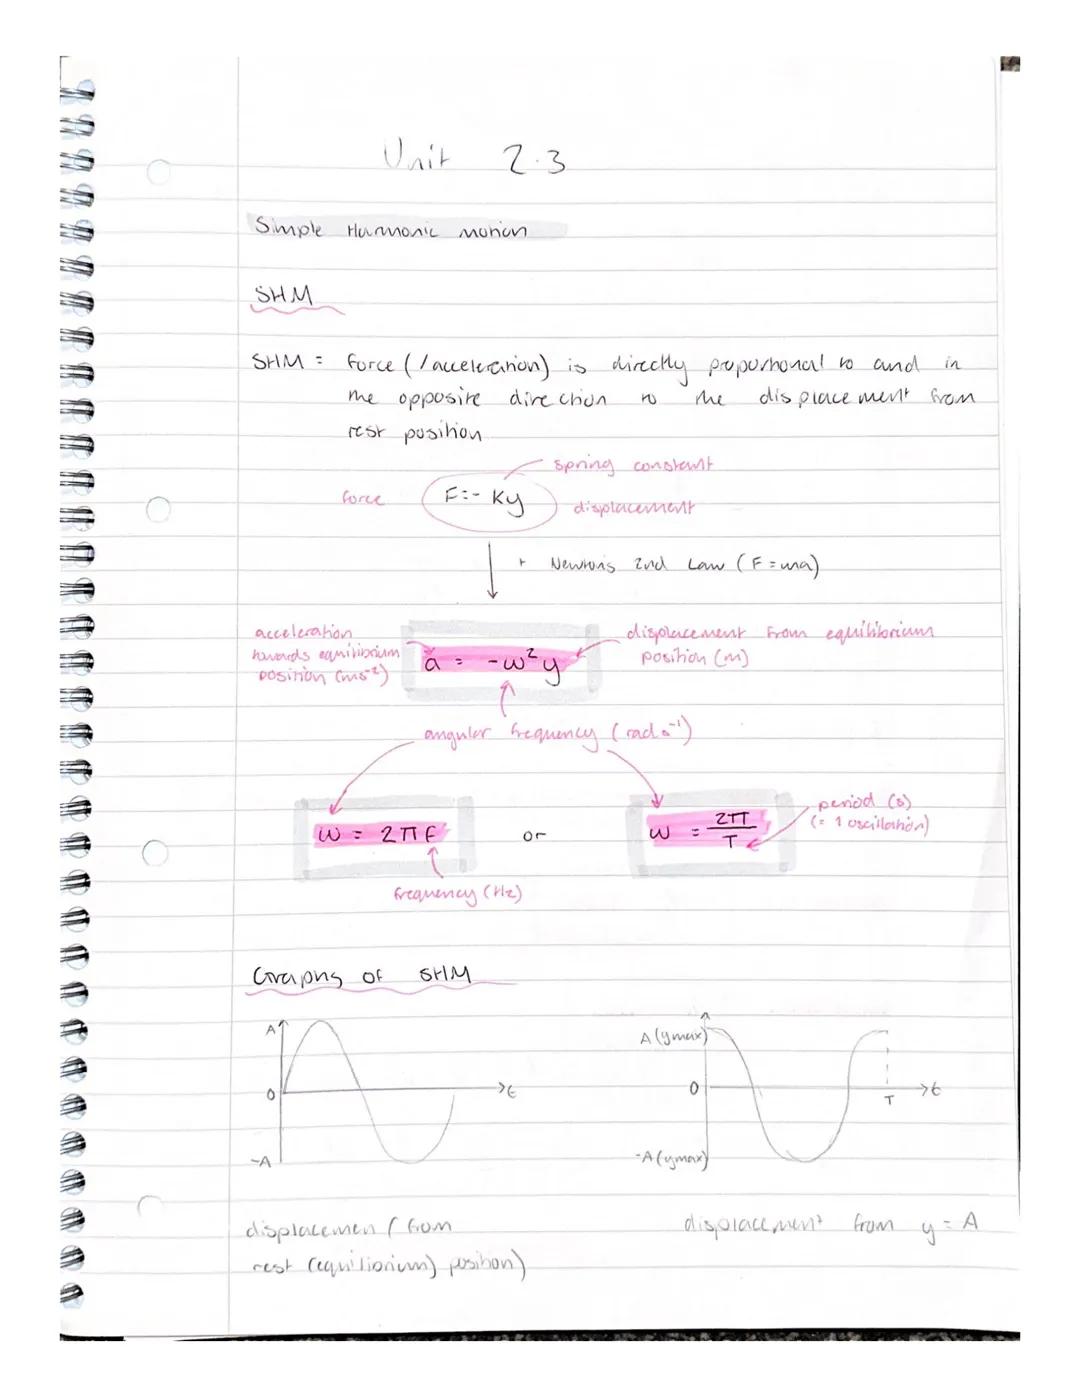 Unit 2.3
Simple Harmonic motion
SHM
SHM = Force (/acceleration) is directly proportional to and in
the opposite direction to the displacement from
rest position
spring constant
force
F=-Ky
displacement
+ Newtons 2nd Law (F=ma)
acceleration
towards equilibrium
position (ms⁻²)
a = -ω²y
displacement from equilibrium
position (m)
angular frequency (rad s⁻¹)
ω = 2πf
or
ω = 2π/T
period (s)
(= 1 oscillation)
frequency (Hz)
Graphs of SHM
A
0
-A
t
A (ymax)
0
-A (ymax)
T
t
displacemen (from
rest (equilibrium) position)
displacement from y = A